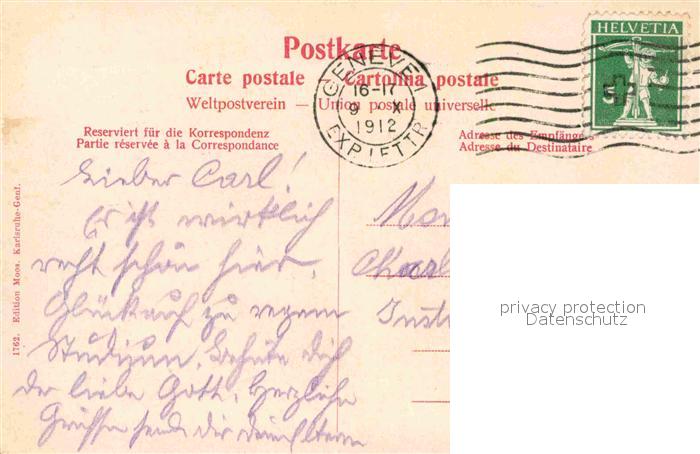 Postkarte
Carte postale Cartolina postale
Weltpostverein — Union postale universelle
HELVETIA
5
GENÈVE 1
16-17
9 X
1912
EXP. LETTR.
Reserviert für die Korrespondenz
Partie réservée à la Correspondance
Adresse des Empfängers
Adresse du Destinataire
1762. Edition Moos. Karlsruhe-Genf.
Lieber Carl!
Es ist wirklich
recht schön hier.
Glückauf zu regem
Studium. Behüte dich
der liebe Gott. Herzliche
Grüsse send. dir dein Eltern
privacy protection
Datenschutz